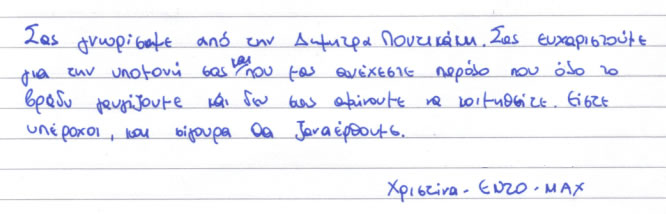 Σας γνωρίσαμε από την Δήμητρα Ποντικάκη. Σας ευχαριστούμε
για την υπομονή σας και που μας ανέχεστε παρόλο που όλο το
βράδυ γαυγίζουμε και δεν σας αφήνουμε να κοιμηθείτε. Είστε
υπέροχοι, και σίγουρα θα ξαναέρθουμε.
Χριστίνα - ENZO - MAX